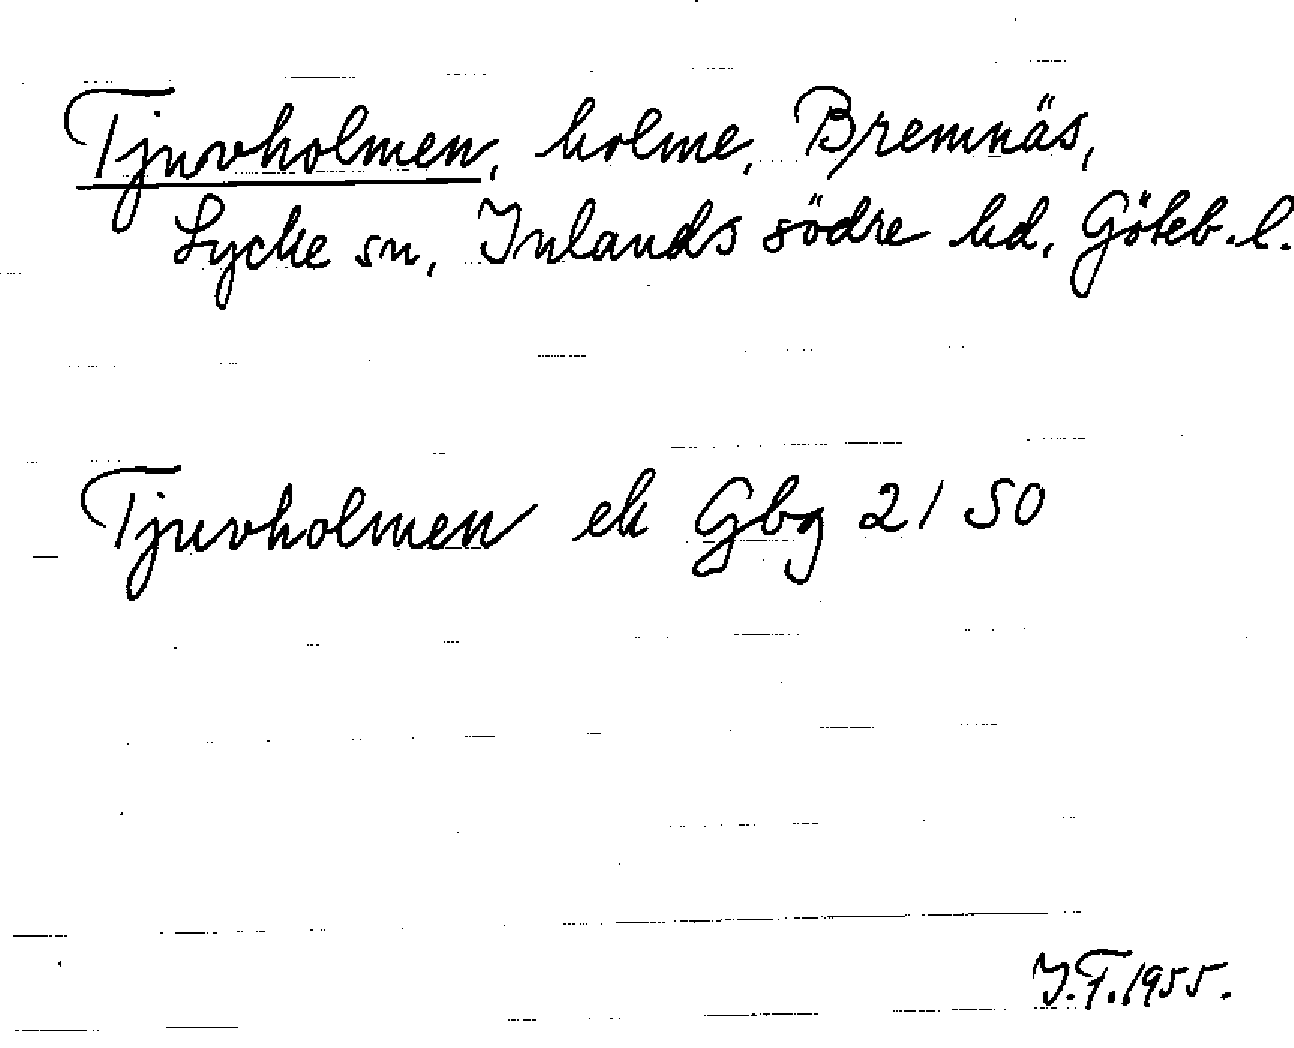 Tjuvholmen, holme, Bremnäs,
Lycke sn, Inlands södre hd, Göteb. l.
Tjuvholmen ek Gbg 21 SO
I.T. 1955.